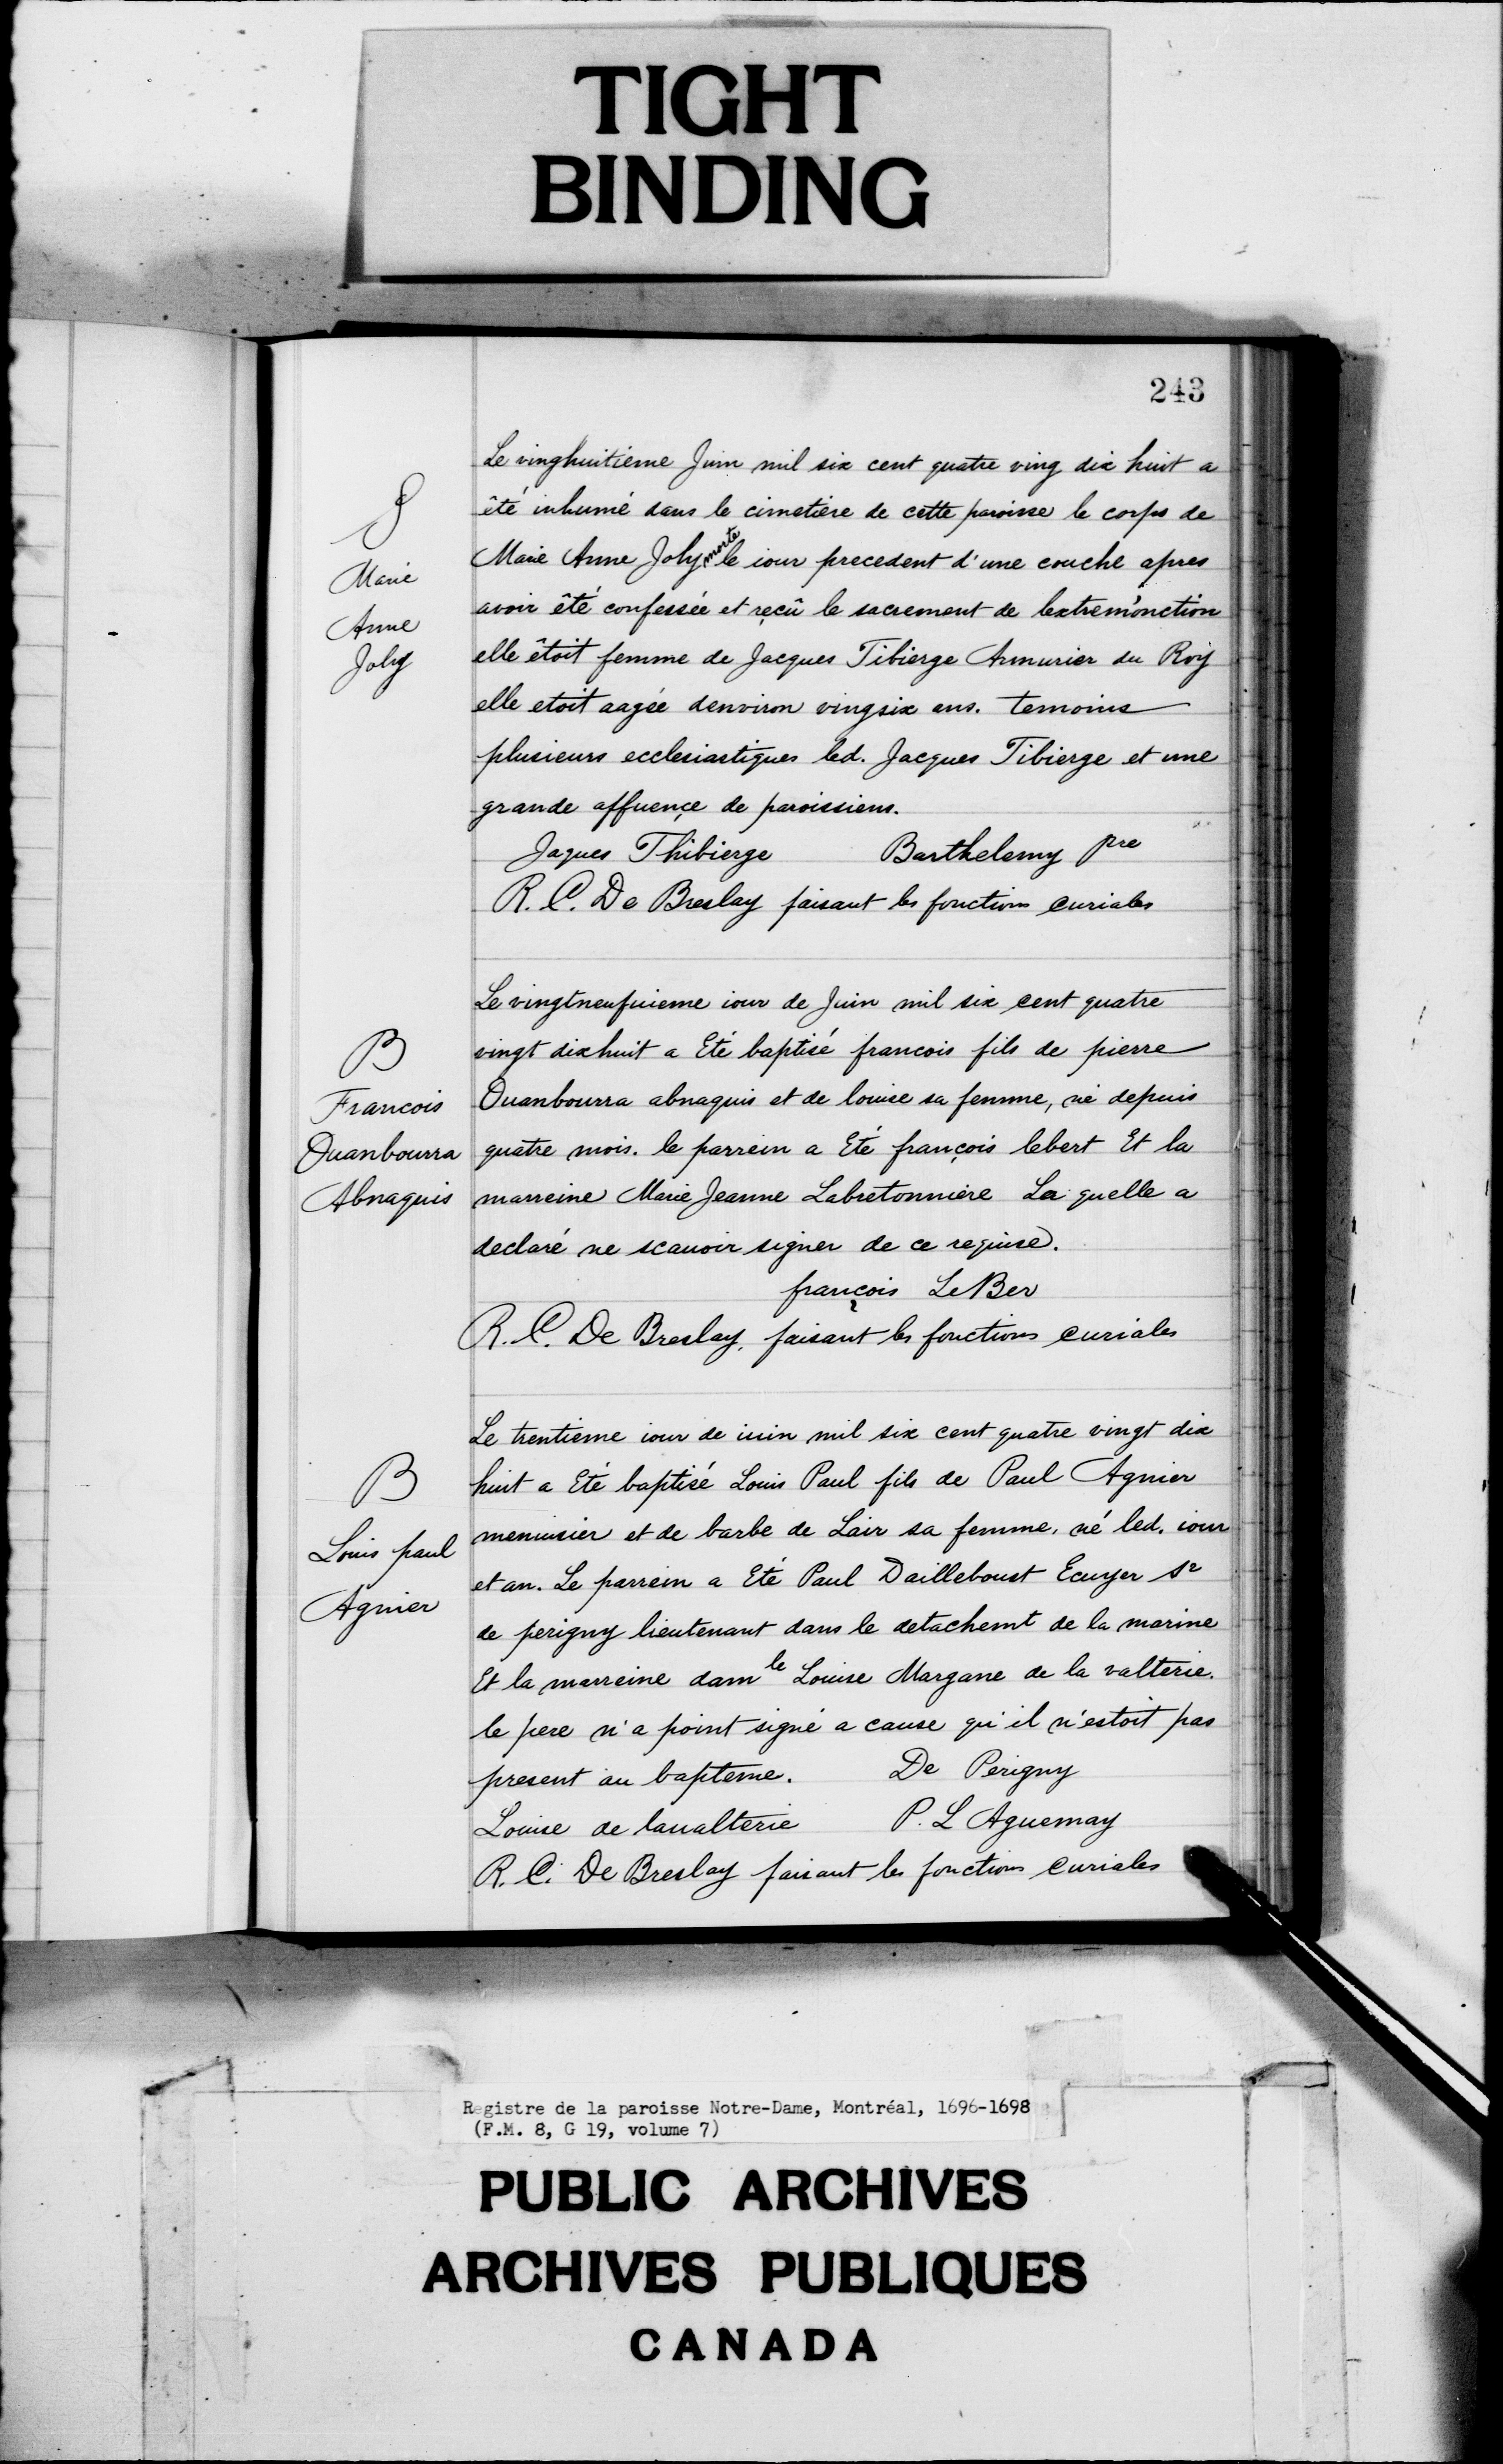 TIGHT
BINDING
243
Le vinghuitieme Juin mil six cent quatre ving dix huit a
été inhumé dans le cimetiere de cette paroisse le corps de
Marie Anne Joly morte le iour precedent d'une couche apres
avoir êté confessée et reçû le sacrement de lextrem'onction
elle êtoit femme de Jacques Tibierge Armurier du Roÿ
elle etoit aagée denviron vingsix ans. temoins
plusieurs ecclesiastiques led. Jacques Tibierge et une
grande affuençe de paroissiens.
Jaques Thibierge Barthelemy pre
R. C. De Breslay faisant les fonctions curiales
S
Marie
Anne
Joly
Le vingtneufuieme iour de Juin mil six cent quatre
vingt dixhuit a Eté baptisé francois fils de pierre
Ouanbourra abnaquis et de louise sa femme, né depuis
quatre mois. le parrein a Eté françois lebert Et la
marreine Marie Jeanne Labretonniere La quelle a
declaré ne scauoir signer de ce requise.
françois LeBer
R. C. De Breslay, faisant les fonctions curiales
B
Francois
Ouanbourra
Abnaquis
Le trentieme iour de iuin mil six cent quatre vingt dix
huit a Eté baptisé Louis Paul fils de Paul Agnier
menuisier et de barbe de Lair sa femme, né led. iour
et an. Le parrein a Eté Paul Dailleboust Ecuyer sr
de perigny lieutenant dans le detachemt de la marine
Et la marreine damle Louise Margane de la valterie.
le pere n'a point signé a cause qu'il n'estoit pas
present au bapteme. De Perigny
Louise de laualterie P. L Aguemay
R. C. De Breslay faisant les fonctions curiales
B
Louis paul
Agnier
Registre de la paroisse Notre-Dame, Montréal, 1696-1698
(F.M. 8, G 19, volume 7)
PUBLIC ARCHIVES
ARCHIVES PUBLIQUES
CANADA